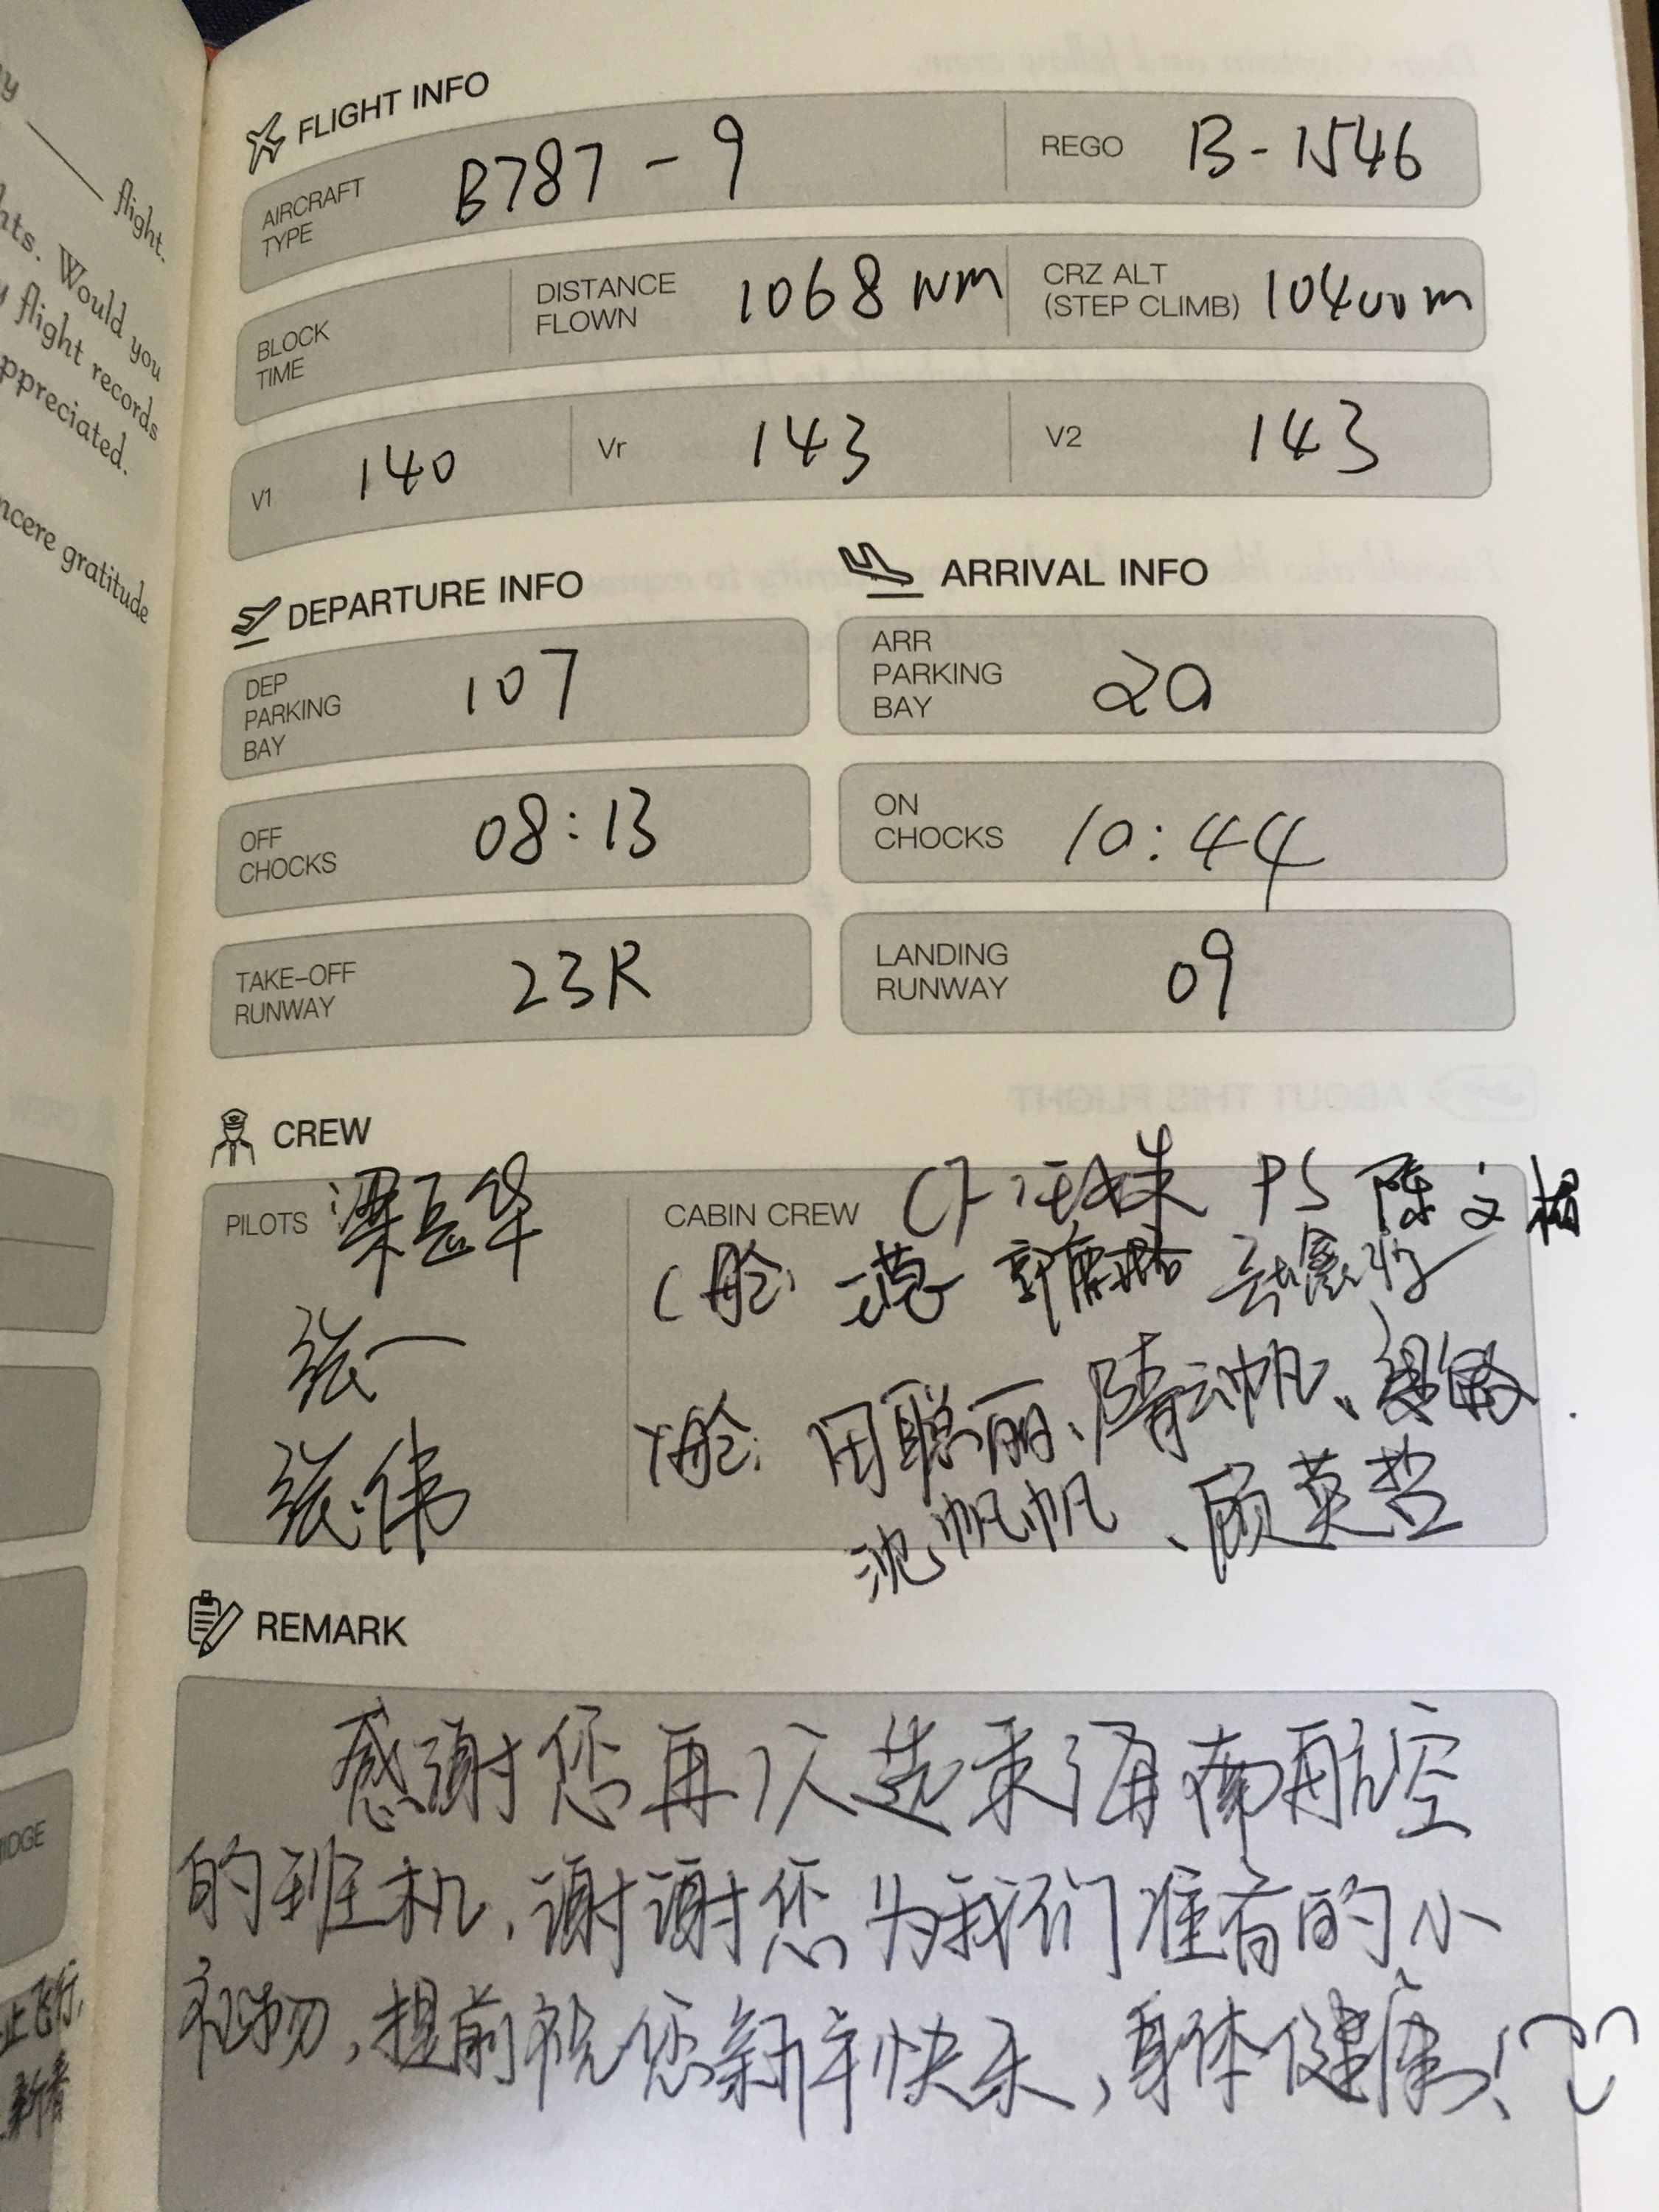 y ____ flight.
hts. Would you
flight records
ppreciated.
ncere gratitude
FLIGHT INFO
AIRCRAFT TYPE B787-9 REGO B-1546
BLOCK TIME DISTANCE FLOWN 1068 NM CRZ ALT (STEP CLIMB) 10400m
V1 140 Vr 143 V2 143
DEPARTURE INFO ARRIVAL INFO
DEP PARKING BAY 107 ARR PARKING BAY 20
OFF CHOCKS 08:13 ON CHOCKS 10:44
TAKE-OFF RUNWAY 23R LANDING RUNWAY 09
CREW
PILOTS CABIN CREW PS 陈文
C舱
张一
Y舱: 聪丽、隋云帆、
张伟
沈帆帆、顾英哲
REMARK
感谢您再次选乘海南航空
的班机,谢谢您为我们准备的小
礼物,提前祝您新年快乐,身体健康!
IDGE
止飞行,